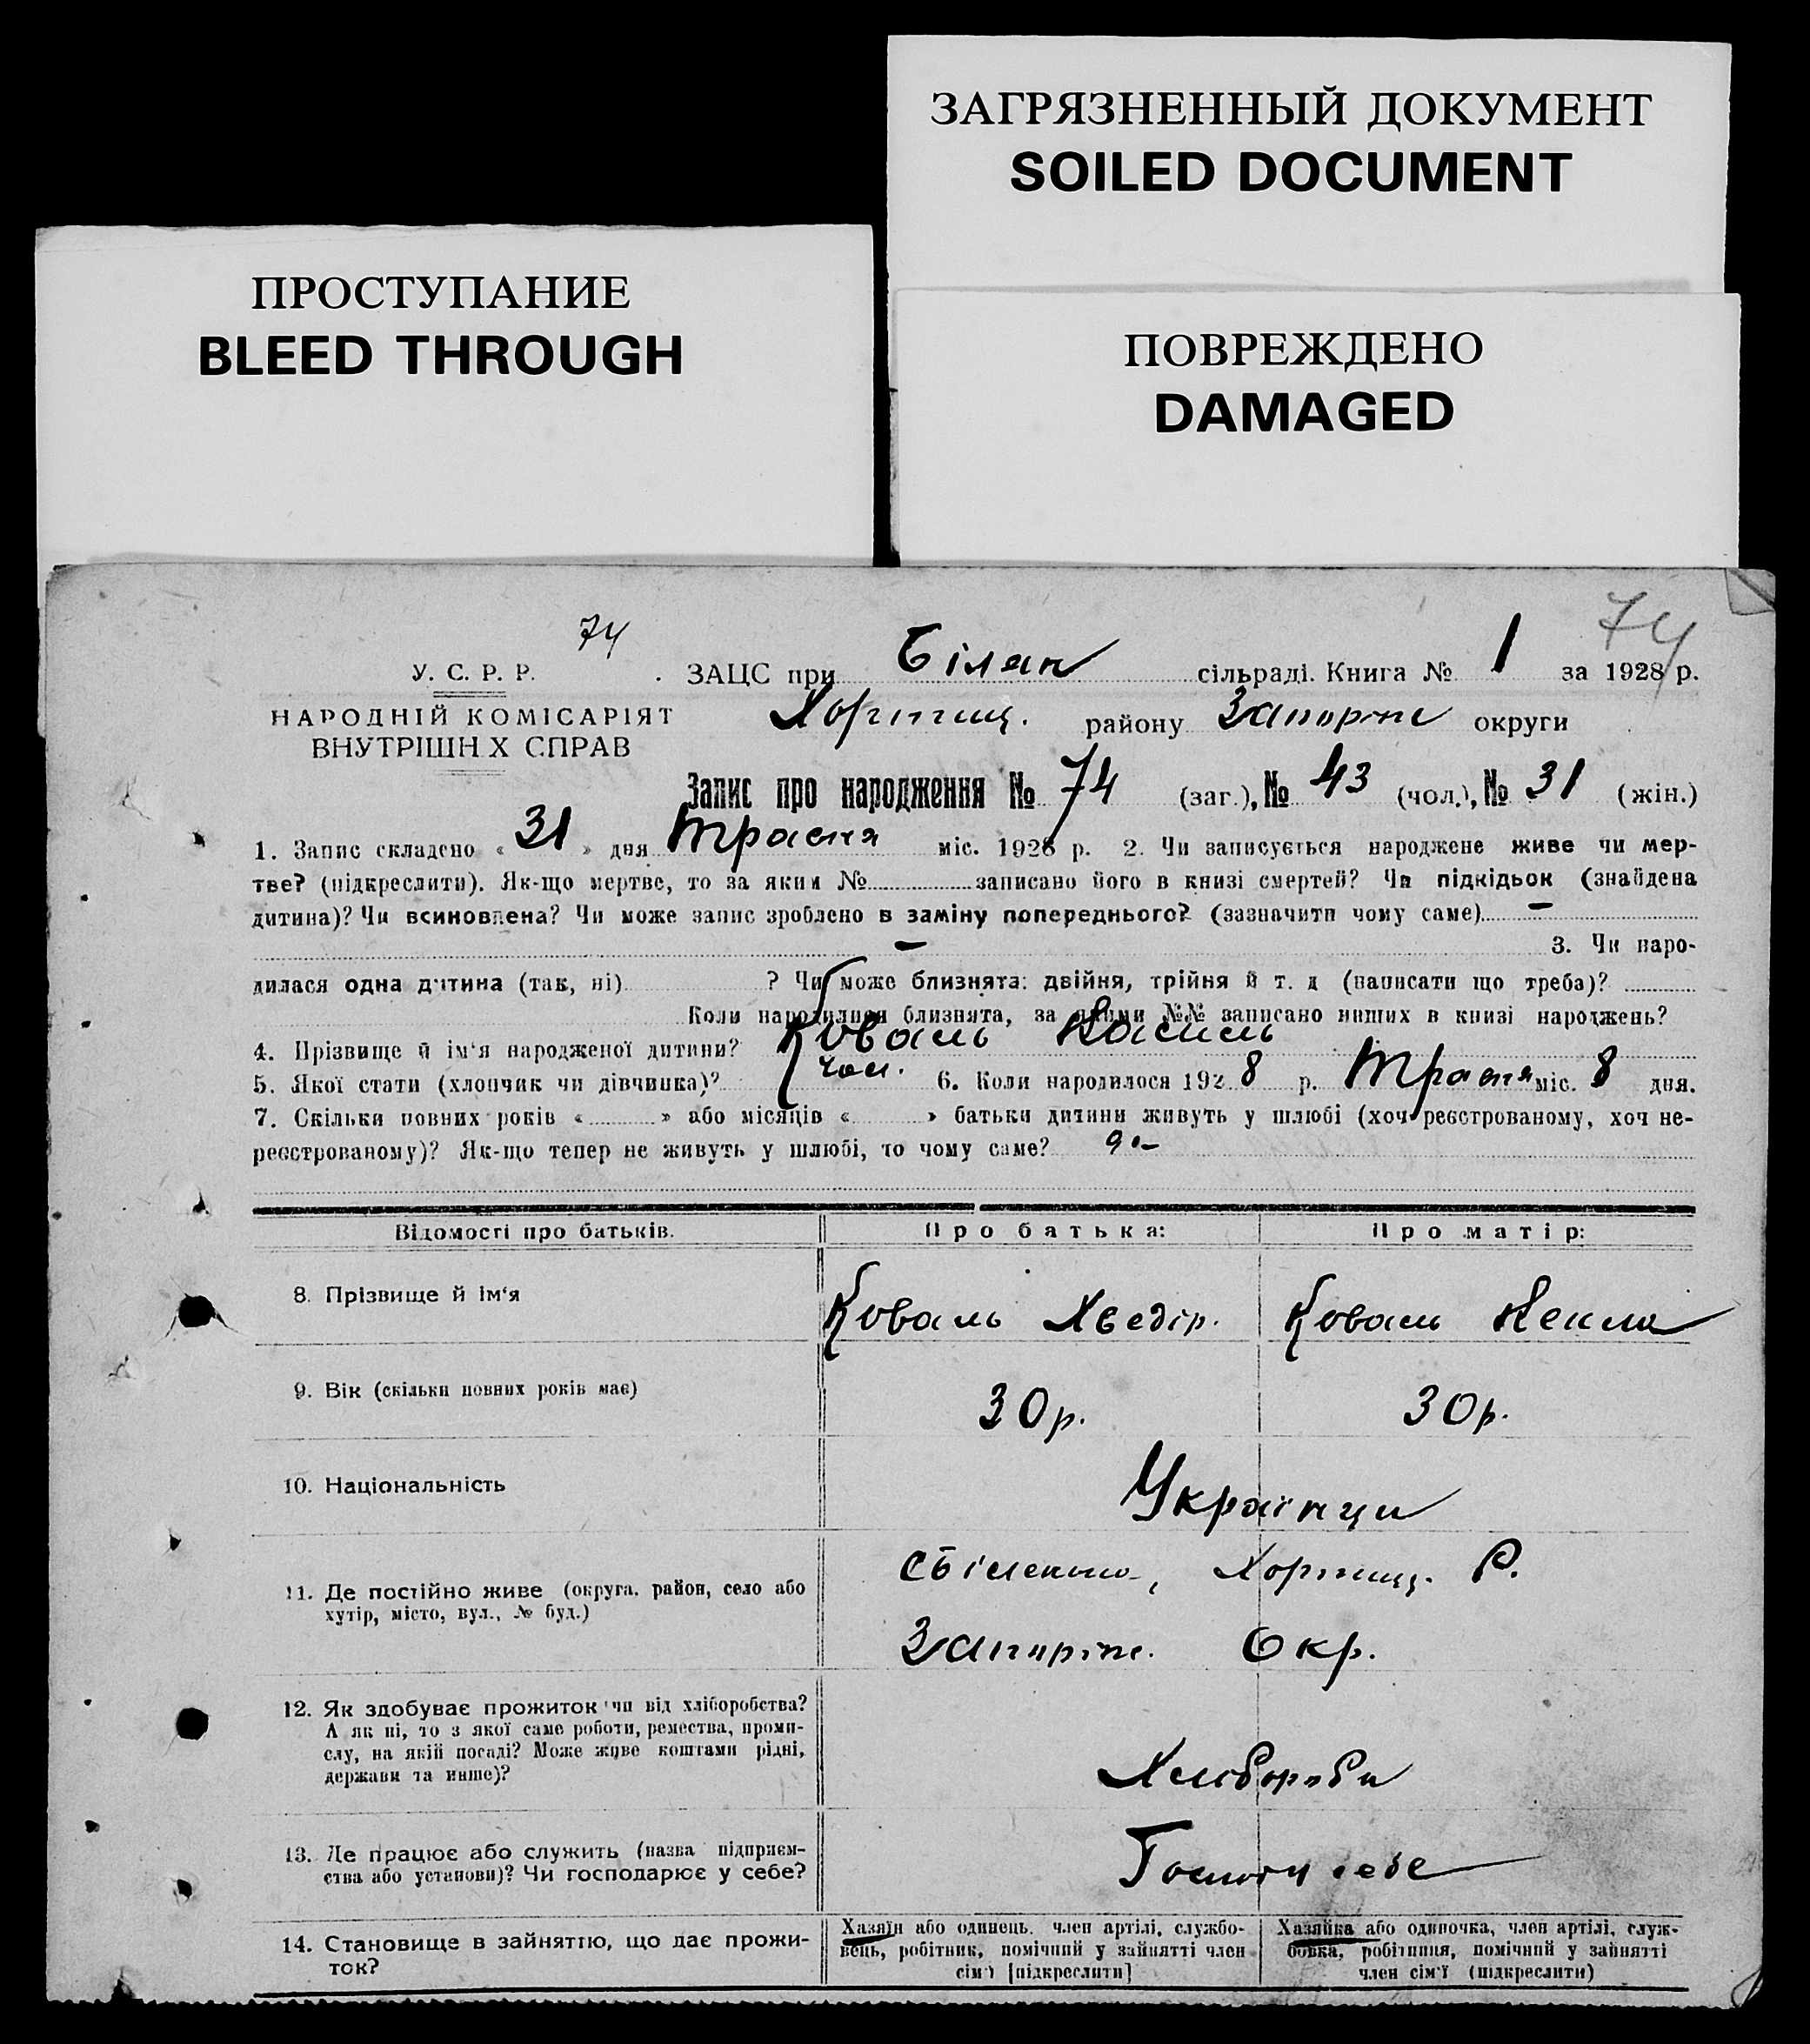 ЗАГРЯЗНЕННЫЙ ДОКУМЕНТ
SOILED DOCUMENT
ПРОСТУПАНИЕ
BLEED THROUGH
ПОВРЕЖДЕНО
DAMAGED
74
74
У. С. Р. Р.
НАРОДНІЙ КОМІСАРІЯТ
ВНУТРІШН Х СПРАВ
ЗАЦС при Білен сільраді. Книга № 1 за 1928 р.
Хортиц. району Запоріж округи
Запис про народження № 74 (заг.), № 43 (чол.), № 31 (жін.)
1. Запис складено « 31 » дня Травня міс. 1928 р. 2. Чи записується народжене живе чи мер-
тве? (підкреслити). Як-що мертве, то за яким № записано його в книзі смертей? Чи підкідьок (знайдена
дитина)? Чи всиновлена? Чи може запис зроблено в заміну попереднього? (зазначити чому саме) –
– 3. Чи наро-
дилася одна дитина (так, ні) ? Чи може близнята: двійня, трійня й т. д (написати що треба)?
Коли народилися близнята, за якими №№ записано инших в книзі народжень?
4. Прізвище й ім'я народженої дитини? Коваль Василь
5. Якої стати (хлопчик чи дівчинка)? чол. 6. Коли народилося 192 8 р. Травня міс. 8 дня.
7. Скільки повних років « » або місяців « » батьки дитини живуть у шлюбі (хоч реєстрованому, хоч не-
реєстрованому)? Як-що тепер не живуть у шлюбі, то чому саме?
Відомості про батьків. Про батька: Про матір:
8. Прізвище й ім'я Коваль Хведір. Коваль Векла
9. Вік (скільки повних років має) 30 р. 30 р.
10. Національність Українци
11. Де постійно живе (округа, район, село або
хутір, місто, вул., № буд.)
с Біленьке, Хортиц. Р.
Запоріж. Окр.
12. Як здобуває прожиток чи від хліборобства?
А як ні, то з якої саме роботи, ремества, проми-
слу, на якій посаді? Може живе коштами рідні,
держави та инше)?
Хлібороби
13. Де працює або служить (назва підприєм-
ства або установи)? Чи господарює у себе?
Господ у себе
14. Становище в зайняттю, що дає прожи-
ток?
Хазяїн або одинець, член артілі, службо-
вець, робітник, помічний у зайнятті член
сім'ї [підкреслити]
Хазяйка або одиночка, член артілі, служ-
бовка, робітниця, помічний у зайнятті
член сім'ї (підкреслити)